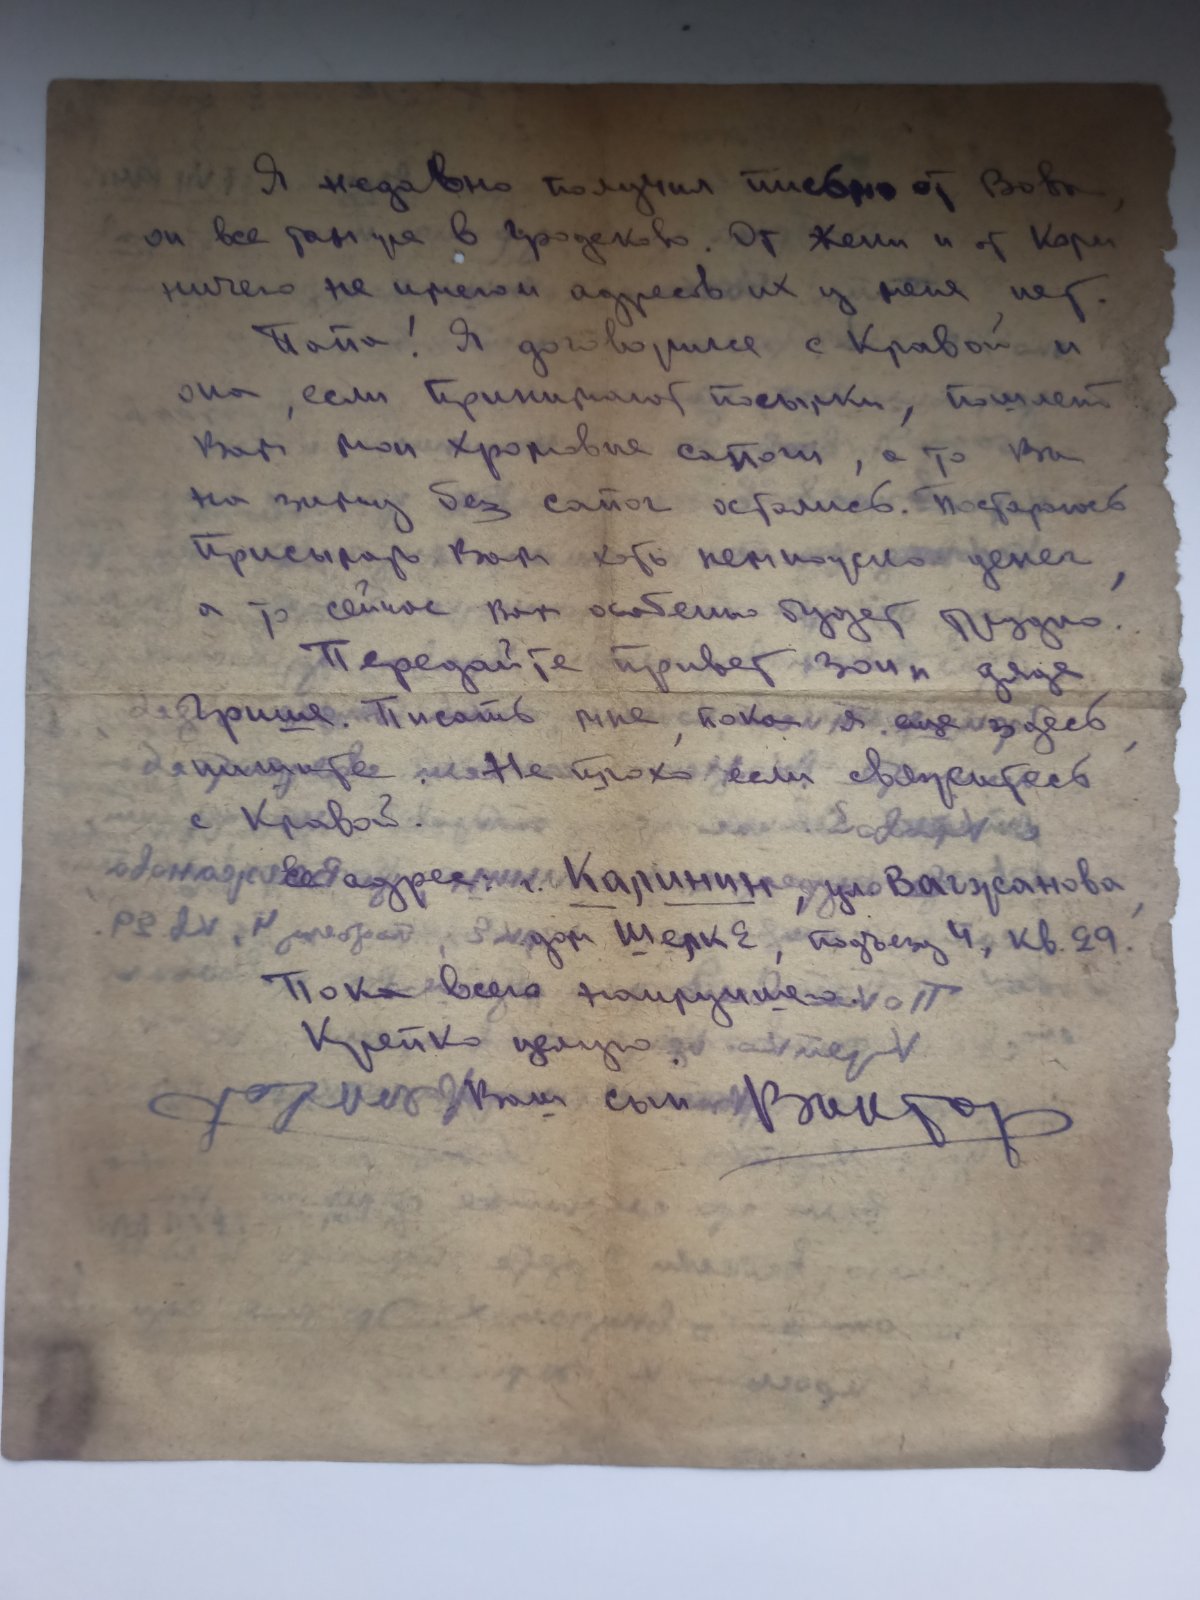 Я недавно получил письмо от Вовы,
он все там же в Гродеково. От Жени и от Коли
ничего не имею и адресов их у меня нет.
Папа! Я договорился с Кравой и
она, если принимают посылки, пошлет
Вам мои хромовые сапоги, а то Вы
на зиму без сапог остались. Постараюсь
присылать Вам хоть немножко денег,
а то сейчас Вам особенно будет трудно.
Передайте привет Зои и дяде
Грише. Писать мне, пока я еще здесь,
пишите. Не плохо если свяжетесь
с Кравой.
Ее адрес: г. Калинин, ул. Вагжанова,
дом Шелк 2, подъезд 4, кв. 29.
Пока всего наилучшего.
Крепко целую.
Ваш сын Виктор